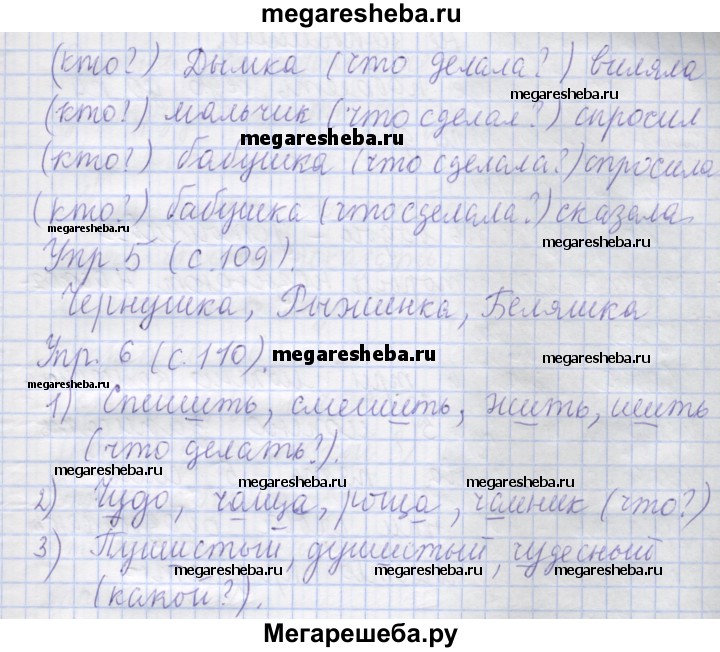 megaresheba.ru
(кто?) Дымка (что делала?) виляла
megaresheba.ru
(кто?) мальчик (что сделал?) спросил
megaresheba.ru
(кто?) бабушка (что сделала?) спросила
(кто?) бабушка (что сделала?) сказала
megaresheba.ru
megaresheba.ru
Упр. 5 (с. 109).
Чернушка, Рыженка, Беляшка
Упр. 6 (с. 110).
megaresheba.ru
megaresheba.ru
megaresheba.ru
1) Спешить, смешить, жить, шить
(что делать?).
megaresheba.ru
megaresheba.ru
2) Чудо, чаща, роща, чайник (что?)
3) Пушистый, душистый, чудесный
megaresheba.ru
megaresheba.ru
megaresheba.ru
(какой?).
Мегарешеба.ру